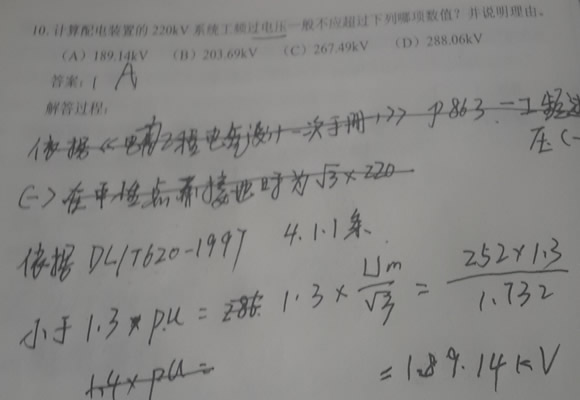 10. 计算配电装置的 220kV 系统工频过电压一般不应超过下列哪项数值？并说明理由。
(A) 189.14kV (B) 203.69kV (C) 267.49kV (D) 288.06kV
答案: ( A
解答过程:
依据《电力工程电气设计一次手册1》P863 一 工频过
压(一
(一)在中性点 接地时为√3×220
依据 DL/T620-1997 4.1.1条
小于 1.3×p.u = 286 1.3×Um/√3 = 252×1.3/1.732
1.4×pu =
=189.14kV